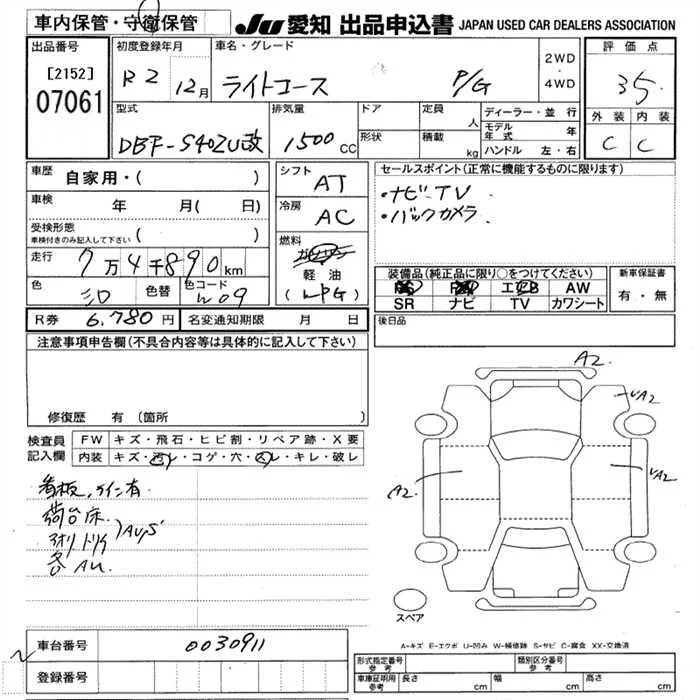 車内保管・守衛保管
JU 愛知 出品申込書 JAPAN USED CAR DEALERS ASSOCIATION
出品番号
[2152]
07061
初度登録年月
R2 12月
車名・グレード
ライトエース P/G
2WD
・
4WD
評価点
3.5
外装 内装
C C
型式
DBF-S402U改
排気量
1500 CC
ドア
形状
定員 人
積載 kg
ディーラー・並行
モデル年式 年
ハンドル 左・右
車歴 自家用・( )
車検 年 月(日)
受検形態
車検付きのみ記入して下さい ( )
走行 7万4千890km
色 シロ 色替 色コード W09
R券 6,780円 名変通知期限 月 日
シフト AT
冷房 AC
燃料 ガソリン
軽油
(LPG)
セールスポイント(正常に機能するものに限ります)
・ナビ-TV
・バックカメラ
装備品(純正品に限り○をつけてください)
AW
SR ナビ TV カワシート
新車保証書
有・無
後日品
注意事項申告欄(不具合内容等は具体的に記入して下さい)
修復歴 有(箇所
検査員
記入欄
FW キズ・飛石・ヒビ割・リペア跡・X要
内装 キズ・汚レ・コゲ・穴・スレ・キレ・破レ
看板,ライン有
荷台床
アオリ トリイ
各AU
A2
A2
A2
A2
スペア
A-キズ E-エクボ U-凹み W-補修跡 S-サビ C-腐食 XX-交換済
車台番号 0030911
登録番号
形式指定番号
参考
類別区分番号
参考
車庫証明用
参考
長さ cm 幅 cm 高さ cm